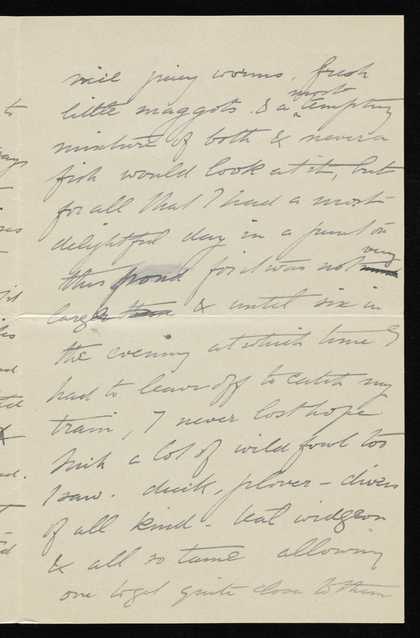 nice juicy worms, fresh
most
little maggots. & a tempting
mixture of both & never a
fish would look at it, but
for all that I had a most
delightful day in a punt on
very
this pond for it was not
large & until six in
the evening at which time I
had to leave off to catch my
train, I never lost hope
a lot of wild fowl too
I saw. duck, plover - divers
of all kind - teal widgeon
& all so tame allowing
one to get quite close to them